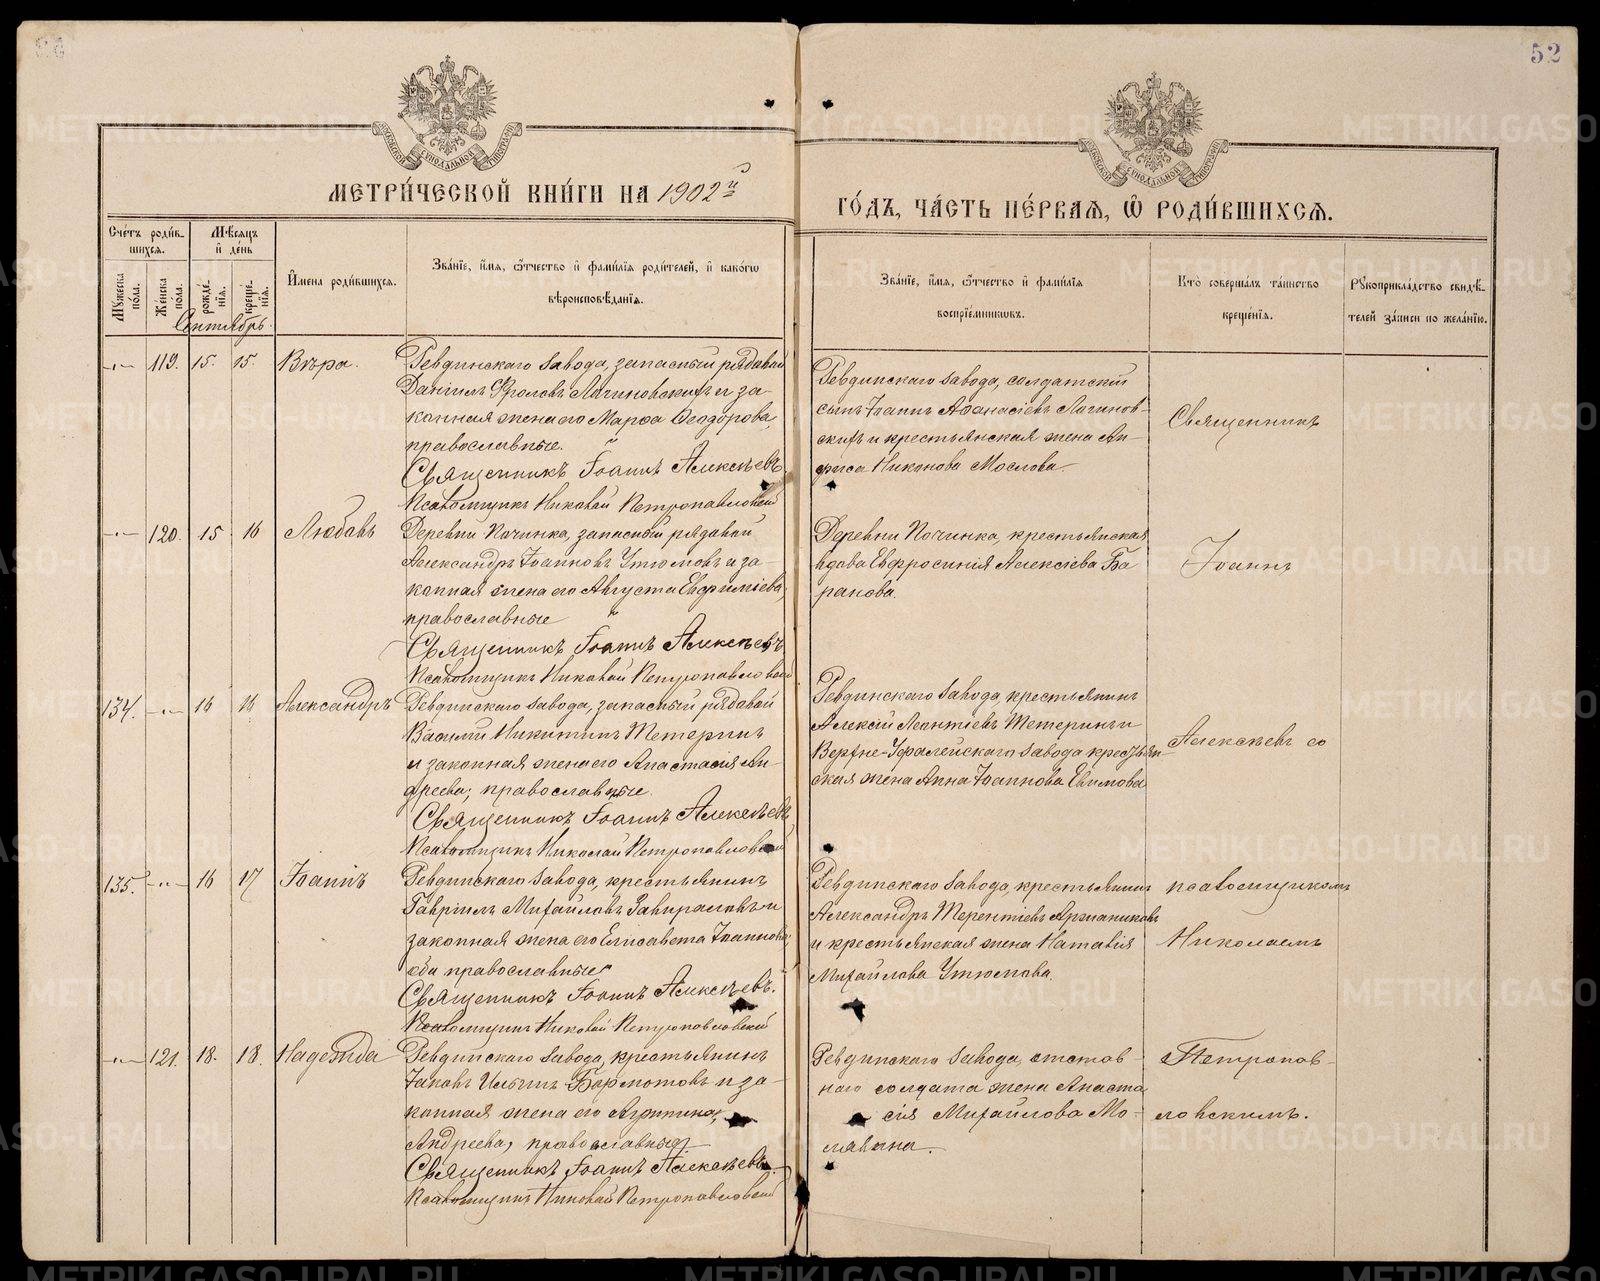 52
МОСКОВСКОЙ СУНОДАЛЬНОЙ ТИПОГРАФІИ
МОСКОВСКОЙ СУНОДАЛЬНОЙ ТИПОГРАФІИ
МЕТРИ́ЧЕСКОЙ КНИ́ГИ НА 1902й
ГО́ДЪ, ЧА́СТЬ ПЕ́РВАЯ, Ѡ҆ РОДИ́ВШИХСЯ.
Сче́тъ роди́в-
шихся.
Мѣ́сяцъ
и҆ де́нь
Мꙋ́жеска
по́ла.
Же́нска
по́ла.
рожде́-
нїя.
креще́-
нїя.
И҆мена роди́вшихся.
Зва́нїе, и҆́мя, ѻ҆́тчество и҆ фами́лїя роди́телей, и҆ како́гѡ
вѣроисповѣ́данїя.
Зва́нїе, и҆́мя, ѻ҆́тчество и҆ фами́лїя
воспрїе́мникѡвъ.
Кто̀ соверша́лъ та́инство
креще́нїя.
Рꙋкоприкла́дство свидѣ́-
телей за́писи по жела́нїю.
Сентябрь.
119. 15. 15. Вѣра.
Ревдинскаго завода, запасный рядовой
Даніилъ Фроловъ Логиновскихъ и за-
конная жена его Марѳа Ѳеодорова,
православные.
Священникъ Іоаннъ Алексѣевъ
Псаломщикъ Николай Петропавловскій
Ревдинскаго завода, солдатскій
сынъ Іоаннъ Аѳанасіевъ Логинов-
скихъ и крестьянская жена Ан-
фиса Никонова Мослова
Священникъ
120. 15 16 Любовь
Деревни Починка, запасный рядовой
Александръ Іоанновъ Утюмовъ и за-
конная жена его Августа Евфиміева,
православные
Священникъ Іоаннъ Алексѣевъ
Псаломщикъ Николай Петропавловскій
Деревни Починка, крестьянская
вдова Евфросинія Алексіева Ба-
ранова.
Іоаннъ
134. 16 16 Александръ
Ревдинскаго завода, запасный рядовой
Василій Никитинъ Тетеринъ
и законная жена его Анастасія Ан-
дреева; православные.
Священникъ Іоаннъ Алексѣевъ
Псаломщикъ Николай Петропавловскій
Ревдинскаго завода, крестьянинъ
Алексій Леонтіевъ Тетеринъ и
Верхне-Уфалейскаго завода крестьян-
ская жена Анна Іоаннова Евимова
Алексѣевъ со
135. 16 17 Іоаннъ
Ревдинскаго завода, крестьянинъ
Гавріилъ Михайловъ и
законная жена его Елисавета Іоаннова;
оба православные
Священникъ Іоаннъ Алексѣевъ.
Псаломщикъ Николай Петропавловскій
Ревдинскаго завода, крестьянинъ
Александръ Терентіевъ Аржанниковъ
и крестьянская жена Наталія
Михайлова Утюмова.
псаломщикомъ
Николаемъ
121. 18. 18. Надежда
Ревдинскаго завода, крестьянинъ
Іаковъ Ильинъ Бормотовъ и за-
конная жена его
Андреева, православныя
Священникъ Іоаннъ Алексѣевъ.
Псаломщикъ Николай Петропавловскій
Ревдинскаго завода, отстав-
наго солдата жена Анаста-
сія Михайлова Мо-

Петропав-
ловскимъ.
METRIKI.GASO-URAL.RU